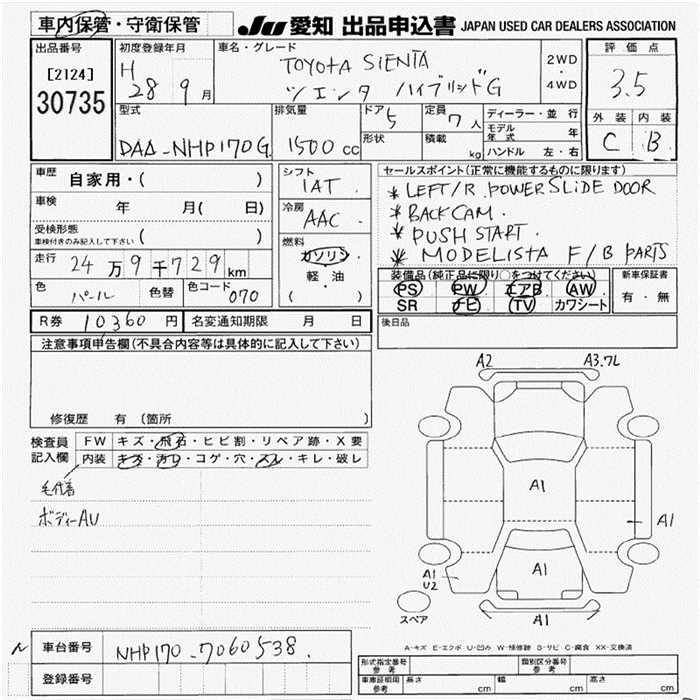 車内保管・守衛保管 JU 愛知 出品申込書 JAPAN USED CAR DEALERS ASSOCIATION
出品番号 初度登録年月 車名・グレード 評価点
[2124] H TOYOTA SIENTA 2WD
30735 28 9月 シエンタ ハイブリッドG ・ 4WD 3.5
型式 排気量 ドア 5 定員 7人 ディーラー・並行 外装 内装
DAA-NHP170G 1500cc 形状 積載 kg モデル年式 年 C B
ハンドル 左・右
車歴 自家用・( ) シフト IAT セールスポイント(正常に機能するものに限ります)
* LEFT/R POWER SLIDE DOOR
車検 年 月( 日) 冷房 AAC * BACK CAM.
受検形態 * PUSH START.
車検付きのみ記入して下さい ( ) 燃料 * MODELISTA F/B PARTS
走行 24万9千729km ガソリン 装備品(純正品に限り○をつけてください) 新車保証書
色 パール 色替 色コード 070 軽・油 PS PW エアB AW 有・無
( ) SR ナビ TV カワシート
R券 10360円 名変通知期限 月 日 後日品
注意事項申告欄(不具合内容等は具体的に記入して下さい)
A2 A3.7L
修復歴 有(箇所 )
検査員 FW キズ・飛石・ヒビ割・リペア跡・X要
記入欄 内装 キズ・汚れ・コゲ・穴・スレ・キレ・破レ
毛付着 A1
ボディーAU A1
A1 A1
U2
スペア A1
A-キズ E-エクボ U-凹み W-補修跡 S-サビ C-腐食 XX-交換済
車台番号 NHP170-7060538.
登録番号 形式指定番号 参考 類別区分番号 参考
車庫証明用 参考 長さ cm 幅 cm 高さ cm